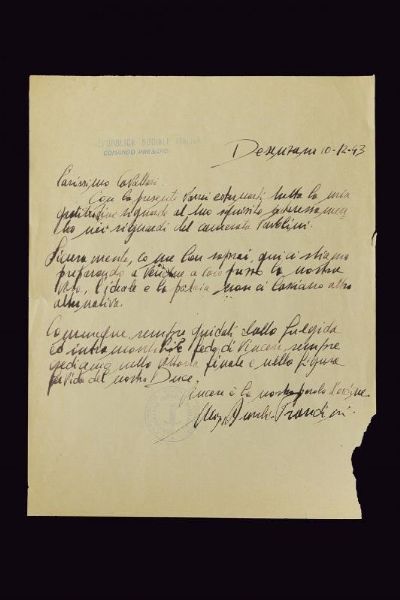 REPUBBLICA SOCIALE ITALIANA
COMANDO PRESIDIO
Desenzano 10-12-43
Carissimo Cavallari,
Con la presente vorrei esternarti tutta la mia
gratitudine riguardo al tuo squisito interessamen
to nei riguardi del camerata
Sicuramente, come ben saprai, qui ci stiamo
preparando a vendere a caro prezzo la nostra
vita, l'ideale e la patria non ci lasciano altra
alternativa.
Comunque, sempre guidati dalla fulgida
ed intramontabile fede di Vincere, sempre
crediamo nella vittoria finale e nella figura
del nostro Duce.
Vincere è la nostra parola d'ordine